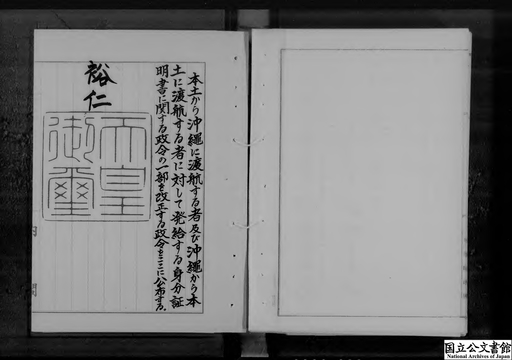 本土から沖縄に渡航する者及び沖縄から本
土に渡航する者に対して発給する身分証
明書に関する政令の一部を改正する政令をここに公布する。
裕仁
天皇
御璽
国立公文書館
National Archives of Japan